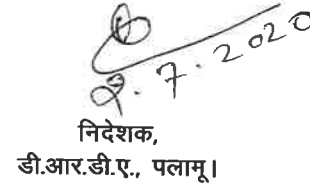 .7.2020
निदेशक,
डी.आर.डी.ए., पलामू।